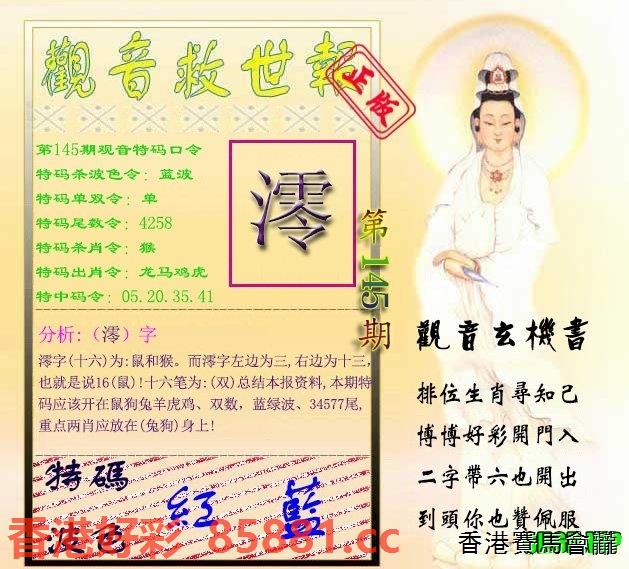 觀音救世報
正版
第145期观音特码口令
特码杀波色令：蓝波
特码单双令：单
特码尾数令：4258
特码杀肖令：猴
特码出肖令：龙马鸡虎
特中码令：05.20.35.41
澪
第145期
分析:（澪）字
澪字(十六)为:鼠和猴。而澪字左边为三,右边为十三,
也就是说16(鼠)!十六笔为:(双)总结本报资料,本期特
码应该开在鼠狗兔羊虎鸡、双数，蓝绿波、34577尾,
重点两肖应放在(兔狗)身上!
觀音玄機書
排位生肖尋知己
博博好彩開門入
二字帶六也開出
到頭你也贊佩服
特碼
波色
紅 藍
香港好彩 85881.cc
香港賽馬會